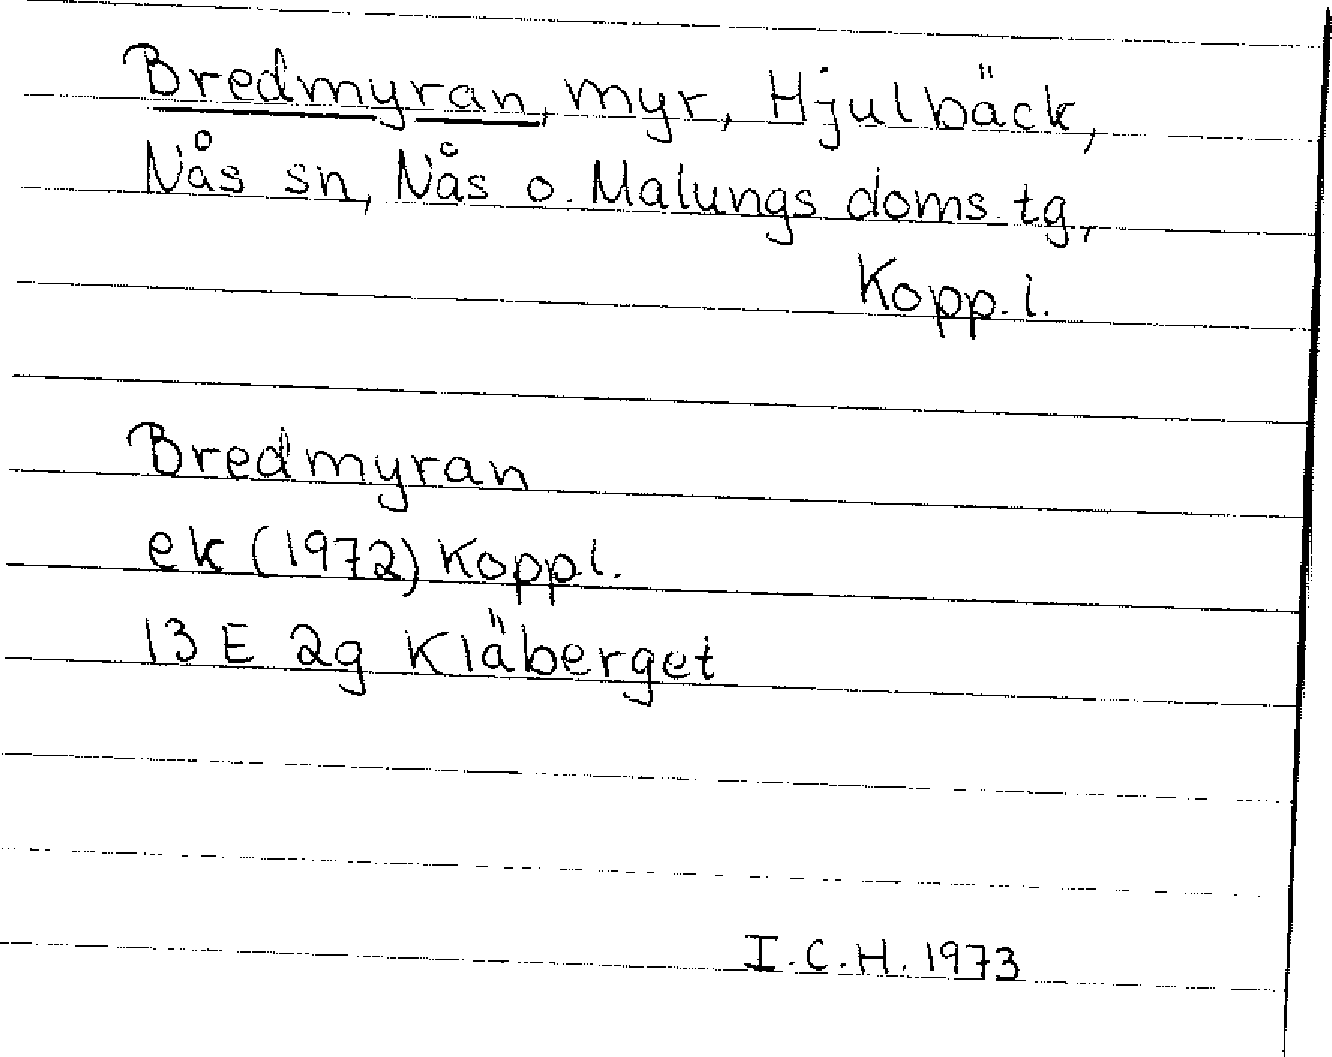 Bredmyran, myr, Hjulbäck,
Nås sn, Nås o. Malungs doms. tg,
Kopp. l.
Bredmyran
ek (1972) Kopp l.
13 E 2g Kläberget
I.C.H. 1973